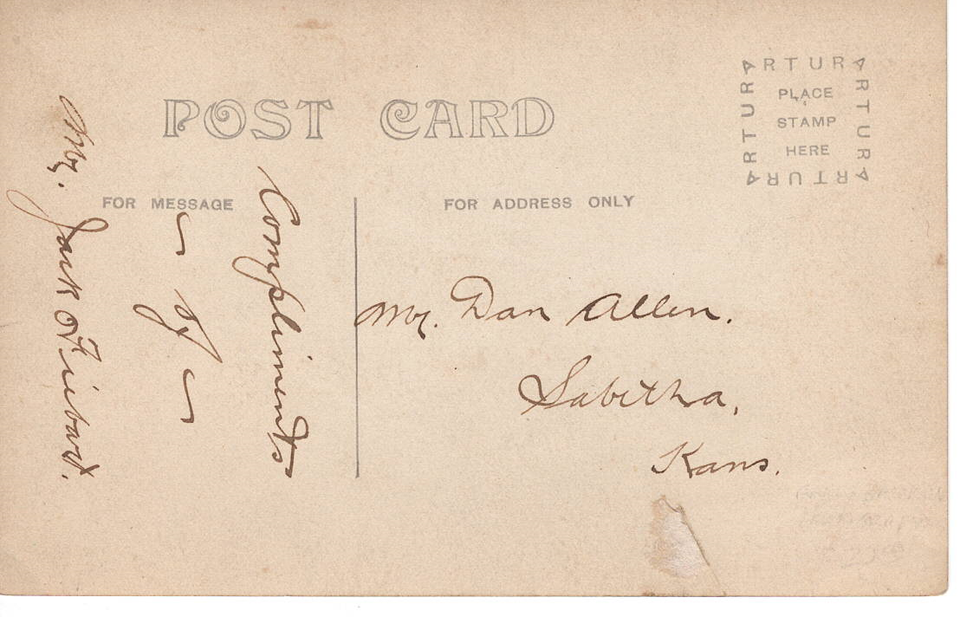 POST CARD
ARTURA
ARTURA
ARTURA
ARTURA
PLACE
STAMP
HERE
FOR MESSAGE
FOR ADDRESS ONLY
Compliments
- of -
Mr. Jack
Mr. Dan Allen.
Sabetha,
Kans.